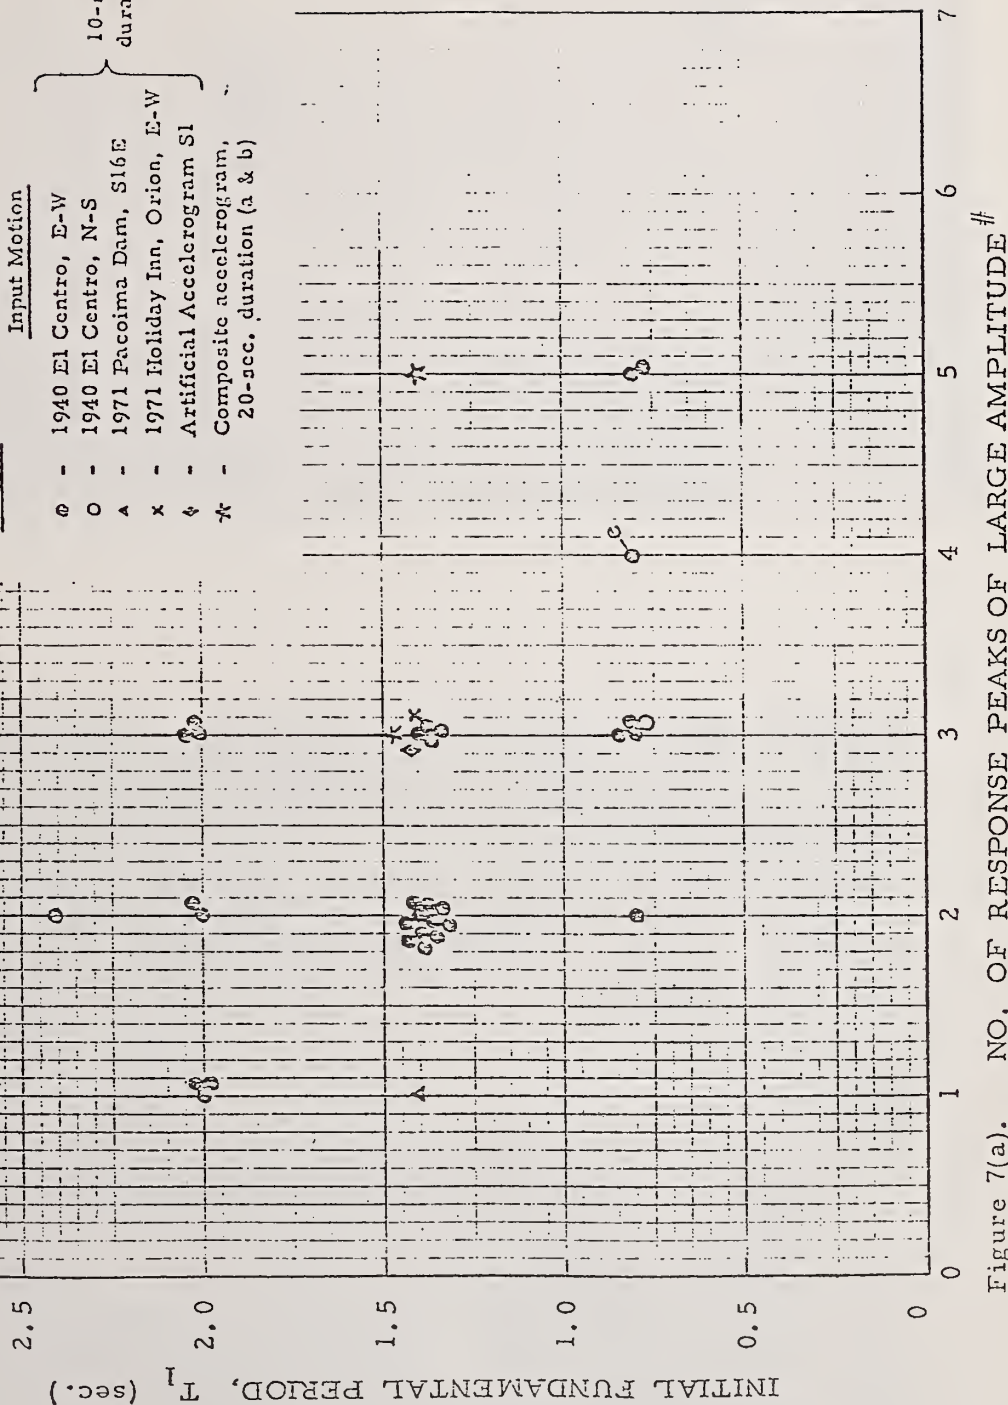 Input Motion
1940 El Centro, E-W
O - 1940 El Centro, N-S
1971 Pacoima Dam, S16E
x - 1971 Holiday Inn, Orion, E-W
Artificial Accelerogram S1
Composite accelerogram,
20-sec. duration (a & b)
2.5
2.0
1.5
1.0
0.5
0
INITIAL FUNDAMENTAL PERIOD, T1 (sec.)
0 1 2 3 4 5 6 7
Figure 7(a). NO. OF RESPONSE PEAKS OF LARGE AMPLITUDE#